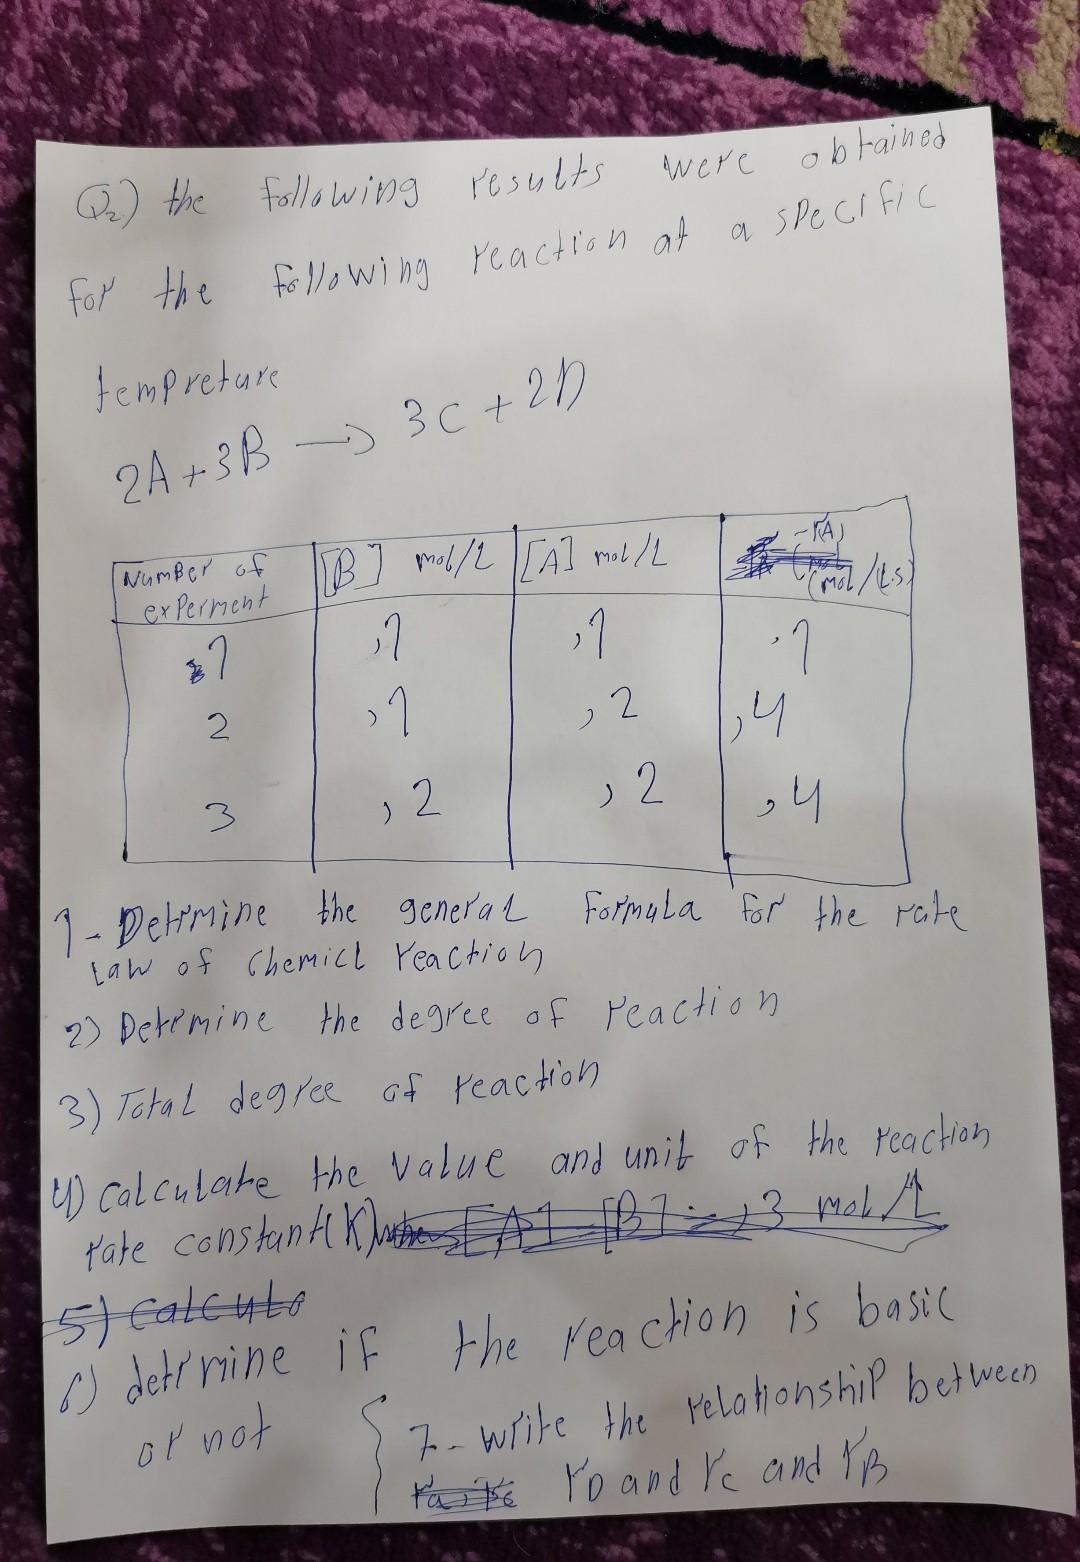 Q2) the following results were obtained
for the following reaction at a specific
tempreture
2A + 3B → 3C + 2D
Number of experment | [B] mol/L | [A] mol/L | -r(A) (mol/(L.s)
1 | ,1 | ,1 | .1
2 | ,1 | ,2 | ,4
3 | ,2 | ,2 | ,4
1- Detirmine the general formula for the rate
Law of chemicl reaction
2) Detrmine the degree of reaction
3) Total degree of reaction
4) calculate the value and unit of the reaction
rate constant(K) [A] [B] = ,3 mol/L
5) calculo
6) detirmine if the reaction is basic
or not
7- write the relationship between
rD and rc and rB